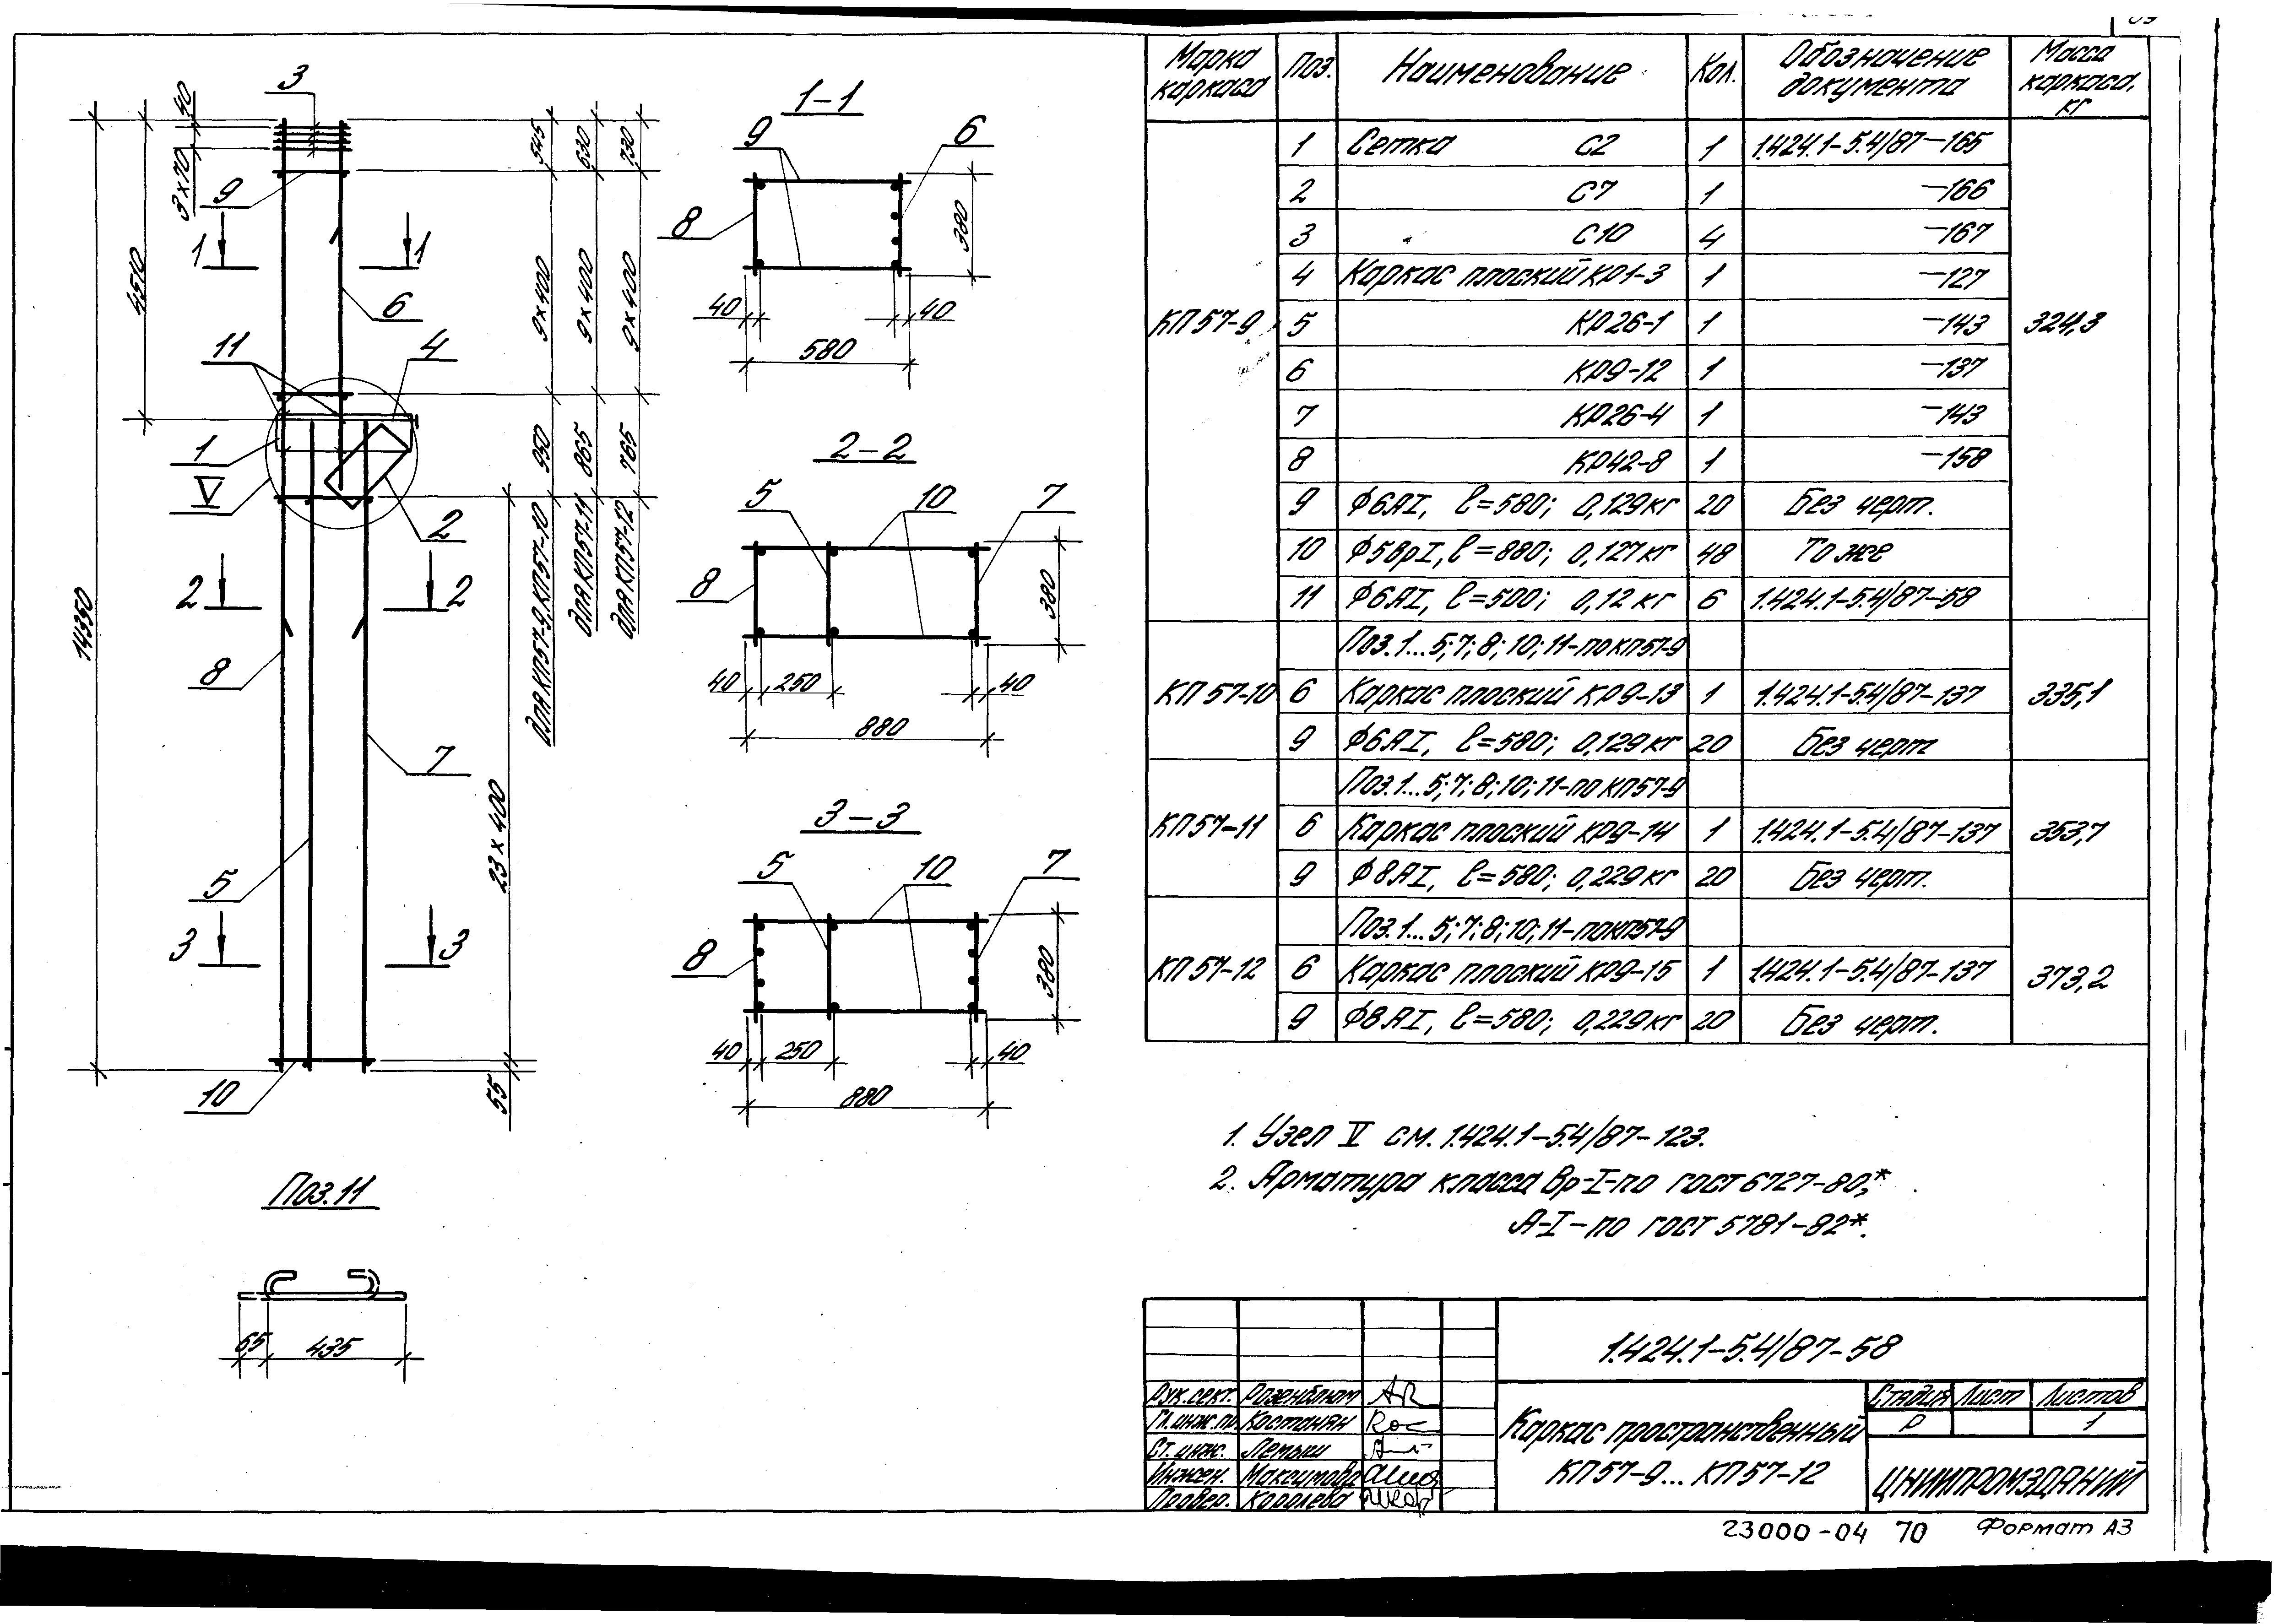 3
40
3×70
9
1
1
4510
6
11
4
1
V
2
2
2
14350
8
7
5
23×400
3
3
10
55
545
630
730
9×400
9×400
9×400
950
865
765
для КП57-9, КП57-10
для КП57-11
для КП57-12
Поз.11
65
435
1-1
9
6
8
380
40
40
580
2-2
5
10
7
8
380
40
250
40
880
3-3
5
10
7
8
380
40
250
40
880
Марка каркаса Поз. Наименование Кол. Обозначение документа Масса каркаса, кг
КП57-9 324,3
1 Сетка С2 1 1.424.1-5.4/87-165
2 С7 1 -166
3 С10 4 -167
4 Каркас плоский КР1-3 1 -127
5 КР26-1 1 -143
6 КР9-12 1 -137
7 КР26-4 1 -143
8 КР42-8 1 -158
9 Ф6АI, l=580; 0,129кг 20 Без черт.
10 Ф5ВрI, l=880; 0,127кг 48 То же
11 Ф6АI, l=500; 0,12кг 6 1.424.1-5.4/87-58
Поз.1...5;7;8;10;11-по КП57-9
КП57-10 6 Каркас плоский КР9-13 1 1.424.1-5.4/87-137 335,1
9 Ф6АI, l=580; 0,129кг 20 Без черт
Поз.1...5;7;8;10;11-по КП57-9
КП57-11 6 Каркас плоский КР9-14 1 1.424.1-5.4/87-137 353,7
9 Ф8АI, l=580; 0,229кг 20 Без черт.
Поз.1...5;7;8;10;11-по КП57-9
КП57-12 6 Каркас плоский КР9-15 1 1.424.1-5.4/87-137 373,2
9 Ф8АI, l=580; 0,229кг 20 Без черт.
1. Узел V см. 1.424.1-5.4/87-123.
2. Арматура класса Вр-I-по ГОСТ 6727-80,*
А-I-по ГОСТ 5781-82*.
1.424.1-5.4/87-58
Рук.сект. Розенблюм
Гл.инж.пр. Костанян
Ст.инж. Летыш
Инжен. Максимова
Провер. Королева
Каркас пространственный
КП57-9... КП57-12
Стадия Лист Листов
Р 1
ЦНИИПРОМЗДАНИЙ
23000-04 70 Формат А3